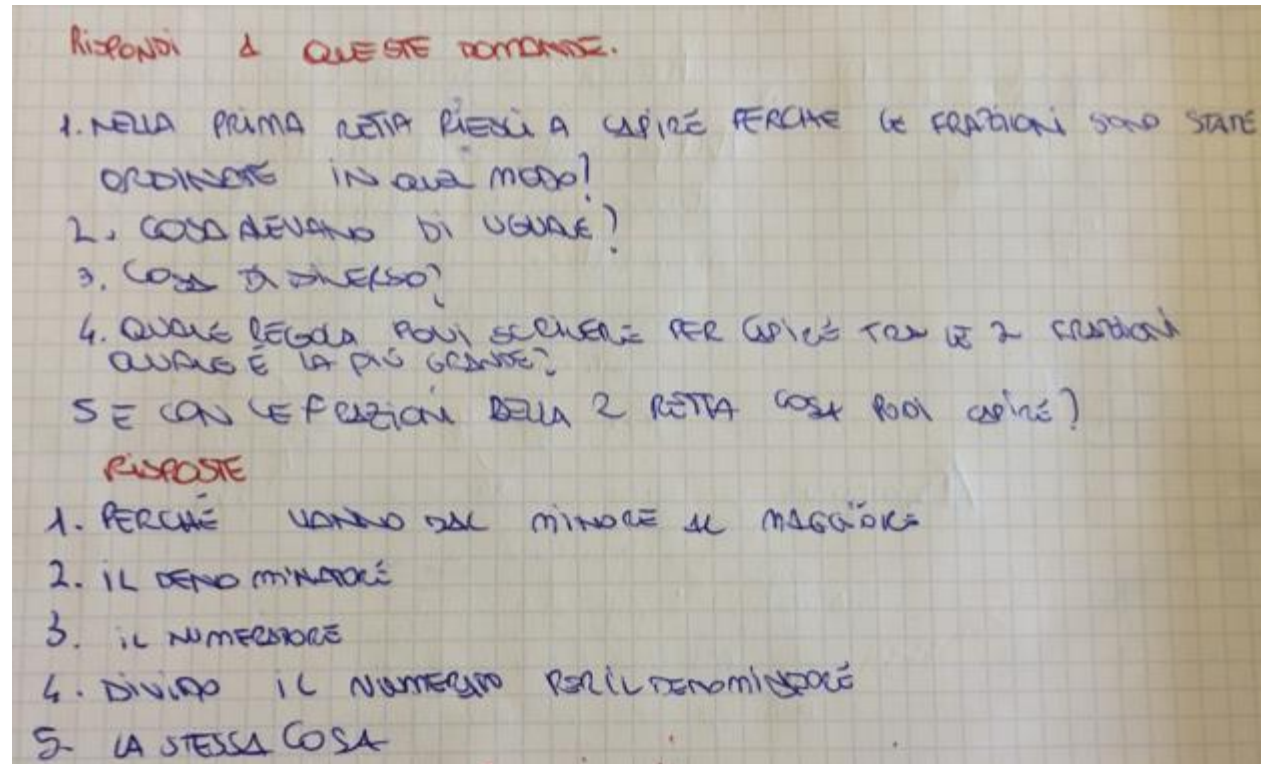 RISPONDI A QUESTE DOMANDE.
1. NELLA PRIMA RETTA RIESCI A CAPIRE PERCHE LE FRAZIONI SONO STATE
ORDINATE IN QUEL MODO?
2. COSA AVEVANO DI UGUALE?
3. COSA DI DIVERSO?
4. QUALE REGOLA PUOI SCRIVERE PER CAPIRE TRA LE 2 FRAZIONI
QUALE È LA PIÙ GRANDE?
5 E CON LE FRAZIONI DELLA 2 RETTA COSA PUOI CAPIRE?
RISPOSTE
1. PERCHÉ VANNO DAL MINORE AL MAGGIORE
2. IL DENOMINATORE
3. IL NUMERATORE
4. DIVIDO IL PER IL DENOMINATORE
5- LA STESSA COSA